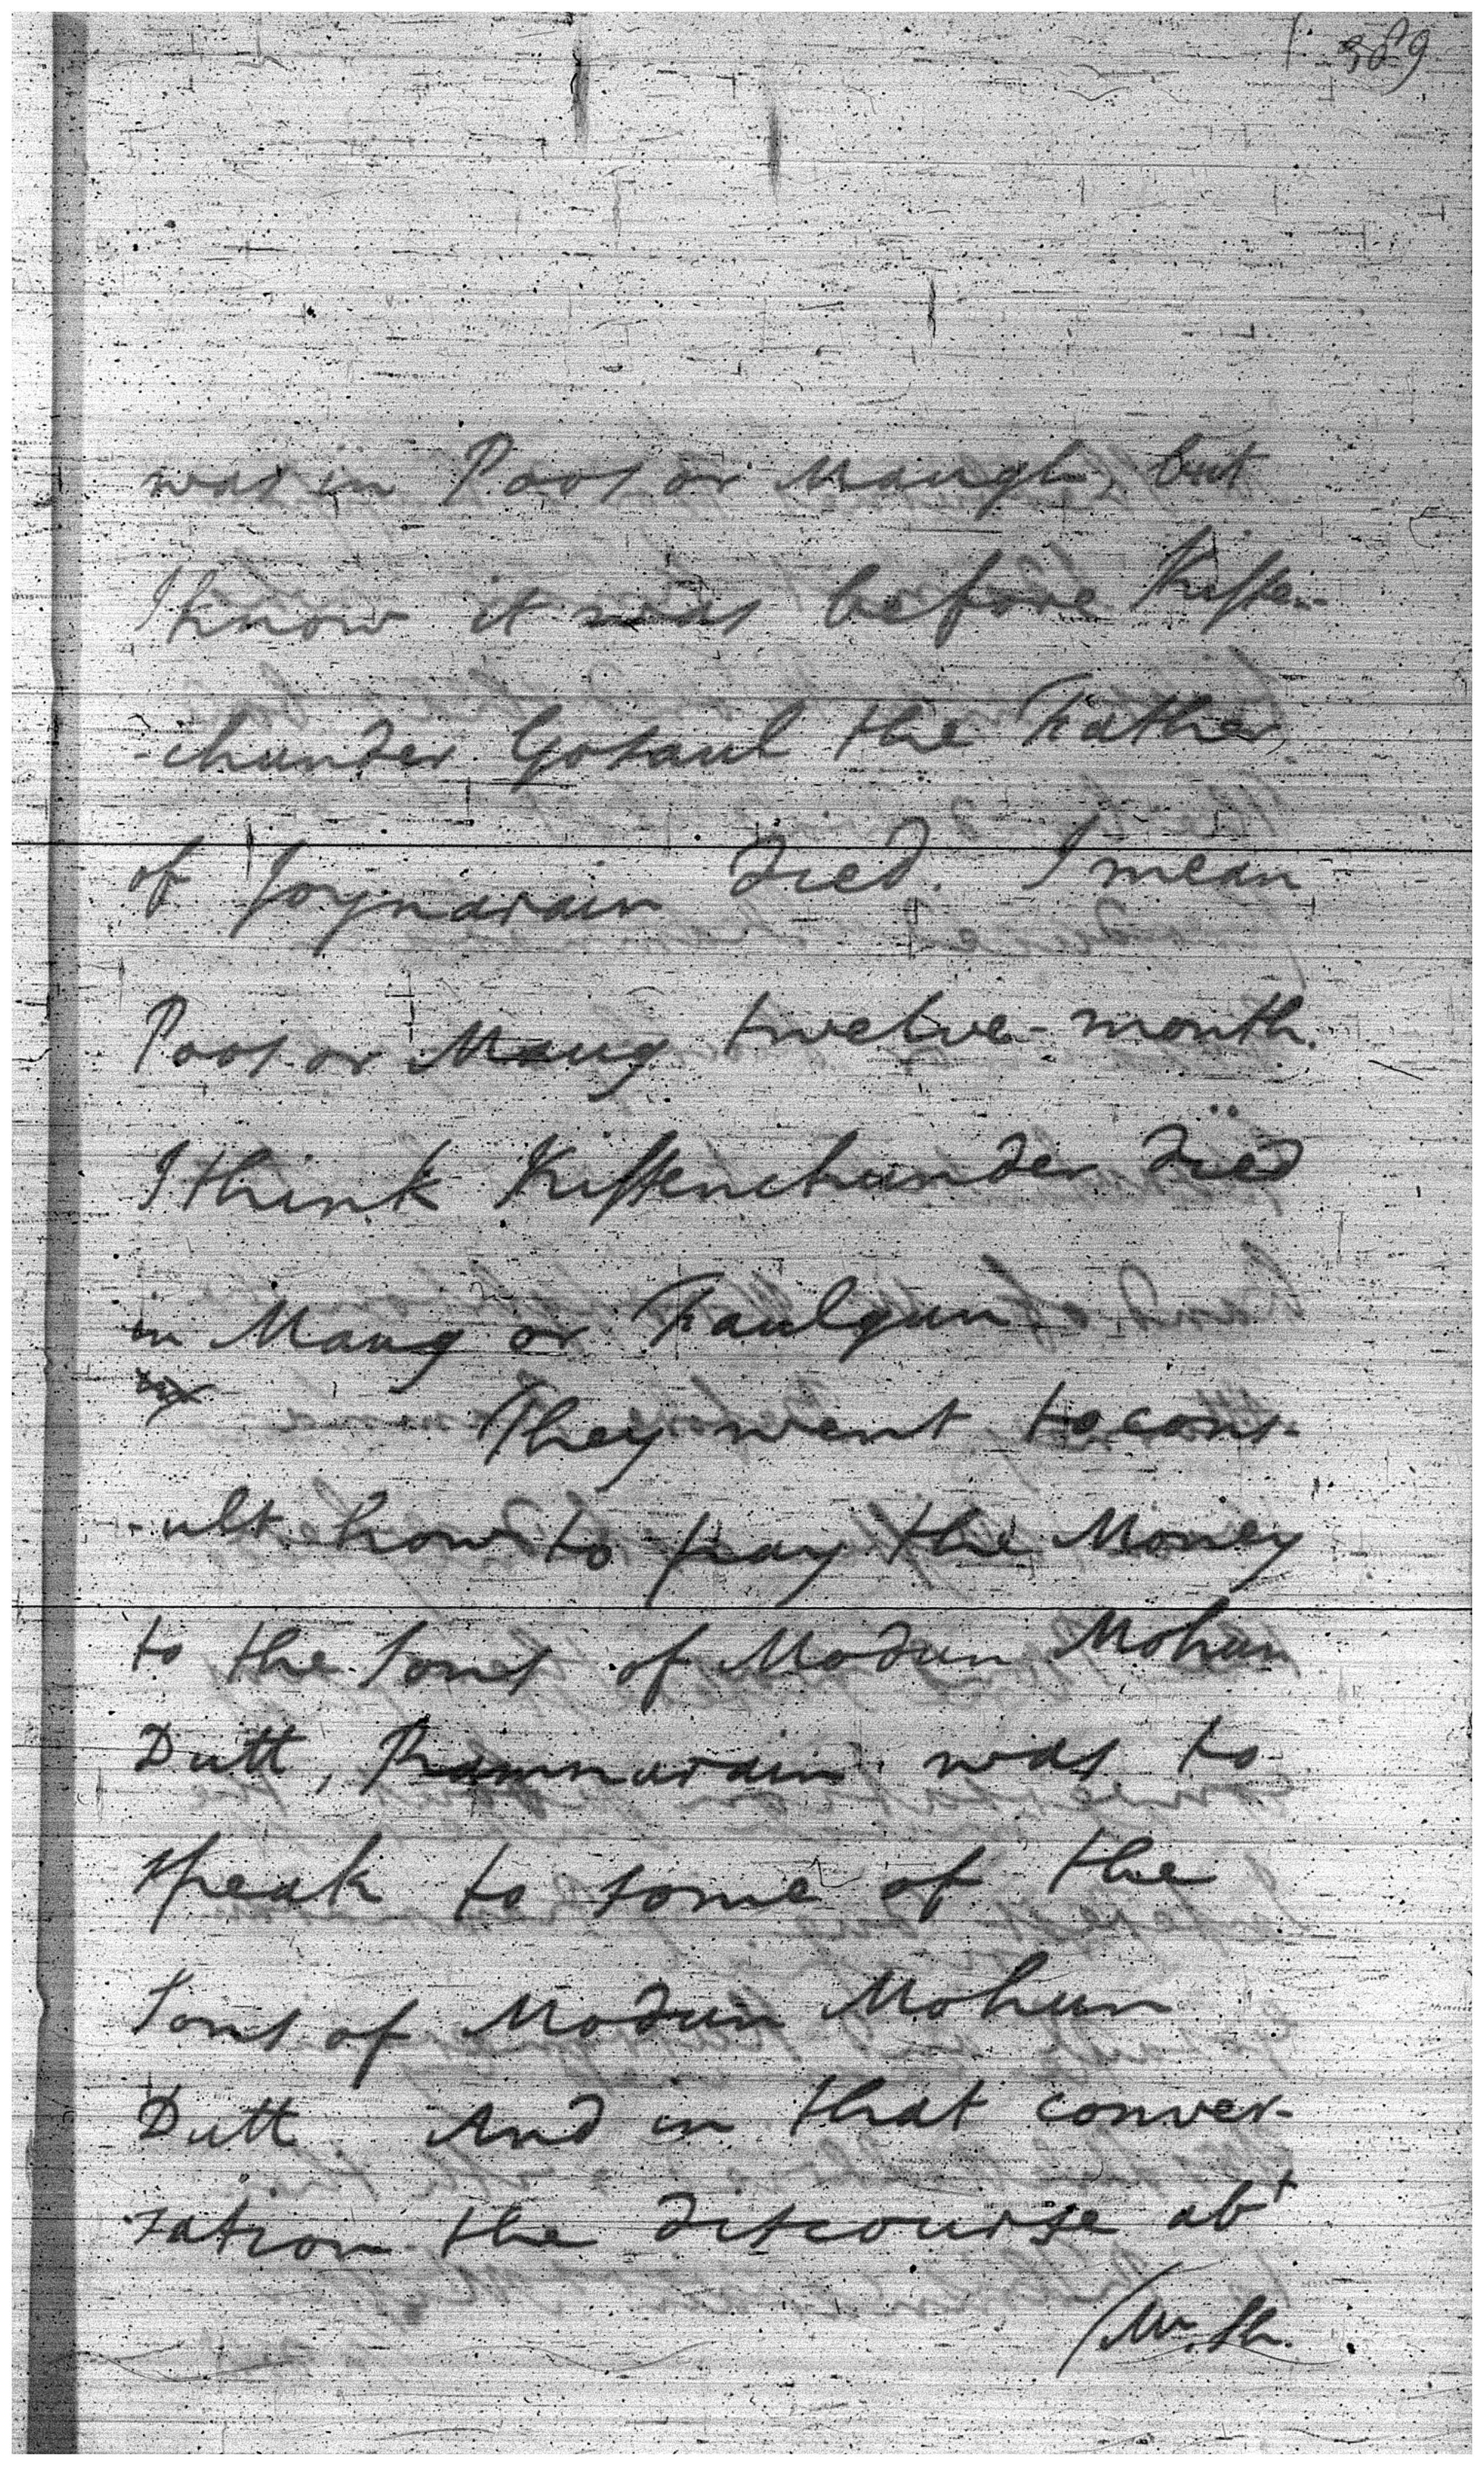 389
was in Poos or Maugh, but
I know it was before Kissen-
-chunder Gosaul the Father
of Joynarain died. I mean
Poos or Maug twelve-month.
I think Kissenchunder died
in Maug or Faulgun
They went to cons-
-ult how to pay the Money
to the Sons of Modun Mohun
Dutt, Ramnarain was to
speak to some of the
Sons of Modun Mohun
Dutt. And in that conver-
-sation the discourse abt